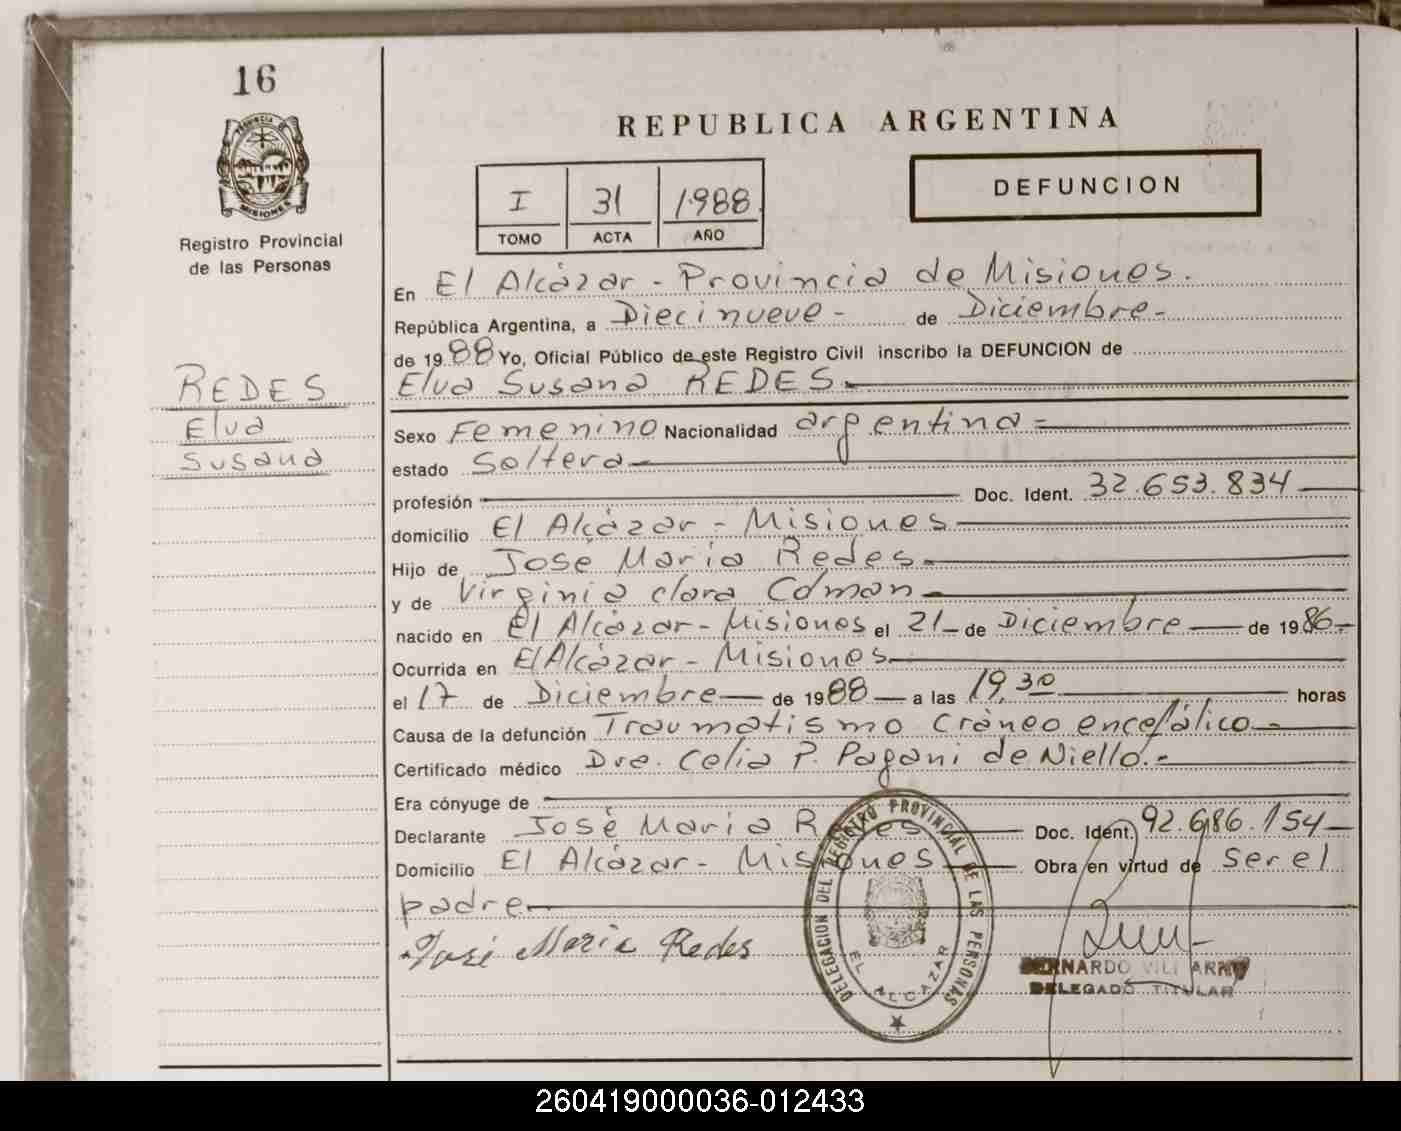 16
PROVINCIA DE
MISIONES
Registro Provincial
de las Personas
REDES
Elva
Susana
REPUBLICA ARGENTINA
I 31 1988
TOMO ACTA AÑO
DEFUNCION
En El Alcázar - Provincia de Misiones.
República Argentina, a Diecinueve - de Diciembre -
de 1988 Yo, Oficial Público de este Registro Civil inscribo la DEFUNCION de
Elva Susana REDES.
Sexo Femenino Nacionalidad argentina
estado Soltera
profesión Doc. Ident. 32.653.834
domicilio El Alcázar - Misiones
Hijo de José María Redes.
y de Virginia Clara Coman
nacido en El Alcázar - Misiones el 21 de Diciembre de 1986
Ocurrida en El Alcázar - Misiones
el 17 de Diciembre de 1988 a las 19,30 horas
Causa de la defunción Traumatismo Cráneo encefálico
Certificado médico Dra. Celia P. Pagani de Niello.-
Era cónyuge de
Declarante José María Redes Doc. Ident. 92.686.154
Domicilio El Alcázar - Misiones Obra en virtud de Ser el
padre
José Maria Redes
DELEGACION DEL REGISTRO PROVINCIAL DE LAS PERSONAS
EL ALCAZAR
BERNARDO
DELEGADO TITULAR
260419000036-012433